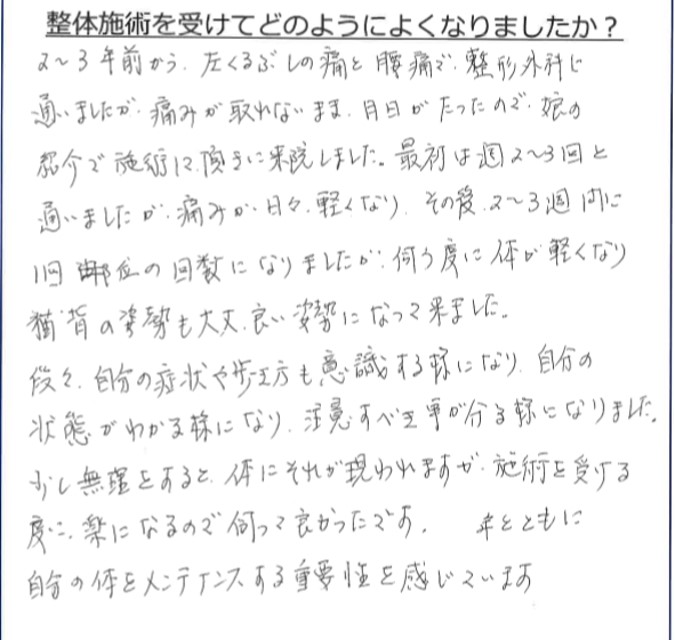 整体施術を受けてどのようによくなりましたか？
2〜3年前から、左くるぶしの痛と腰痛で、整形外科に
通いましたが、痛みが取れないまま、月日がたったので、娘の
紹介で施術に頂きに来院しました。最初は週2〜3回と
通いましたが、痛みが日々、軽くなり、その後、2〜3週間に
1回 単位の回数になりましたが、伺う度に体が軽くなり
猫背の姿勢も大丈、良い姿勢になって来ました。
段々、自分の症状や歩き方も意識する様になり、自分の
状態がわかる様になり、注意すべき事が分る様になりました。
少し無理をすると、体にそれが現われますが、施術を受ける
度に、楽になるので伺って良かったです。 年とともに
自分の体をメンテナンスする重要性を感じています